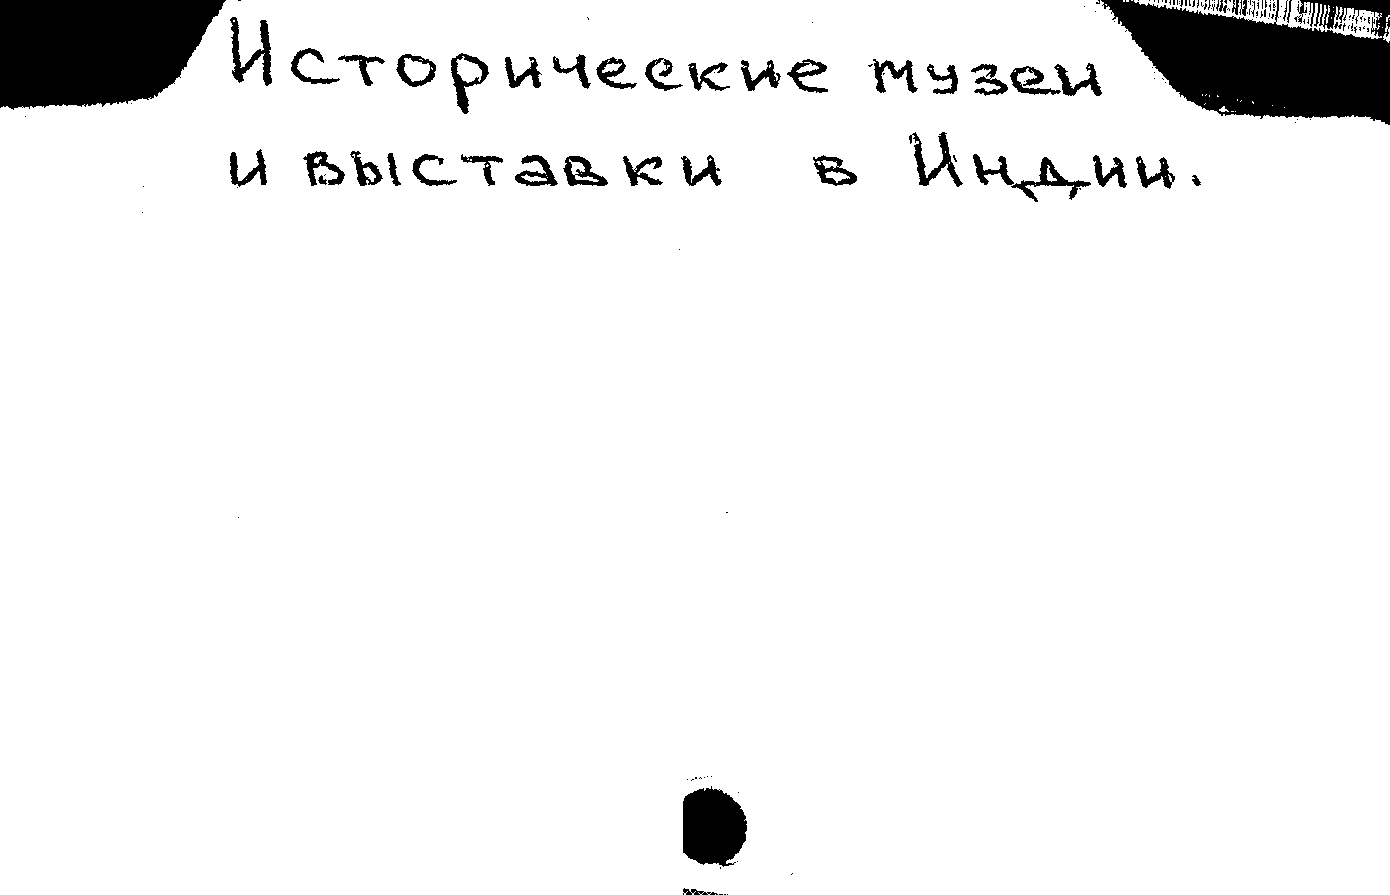 Исторические музеи
и выставки в Индии.